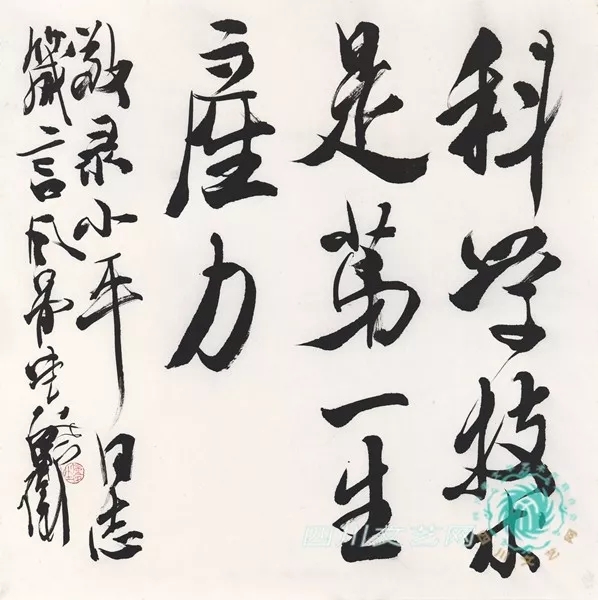 科学技术
是第一生
產力
敬录小平同志
箴言
四川文艺网